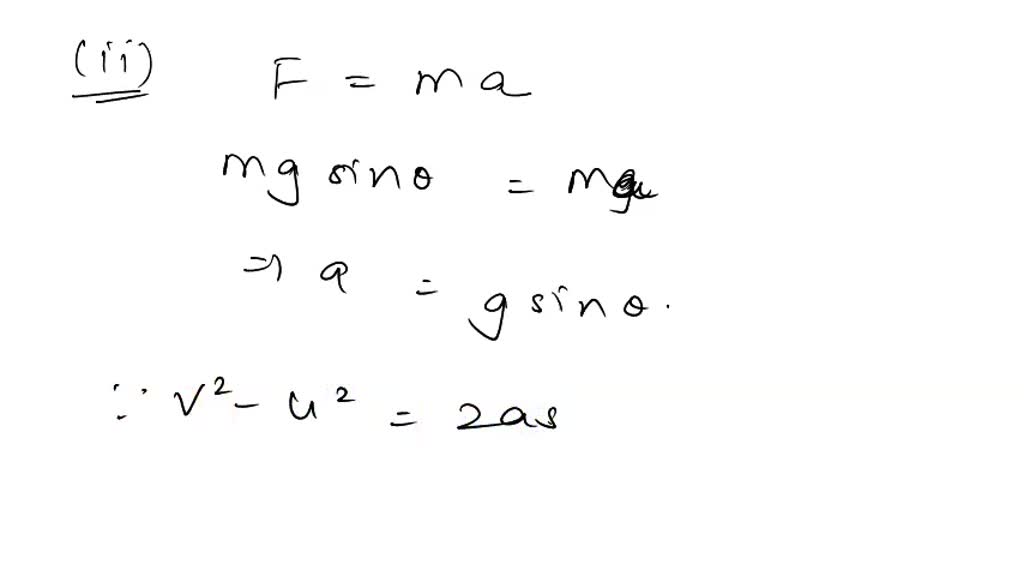 (ii) F = ma
mg sinθ = ma
⇒ a = g sinθ.
∵ v² - u² = 2as